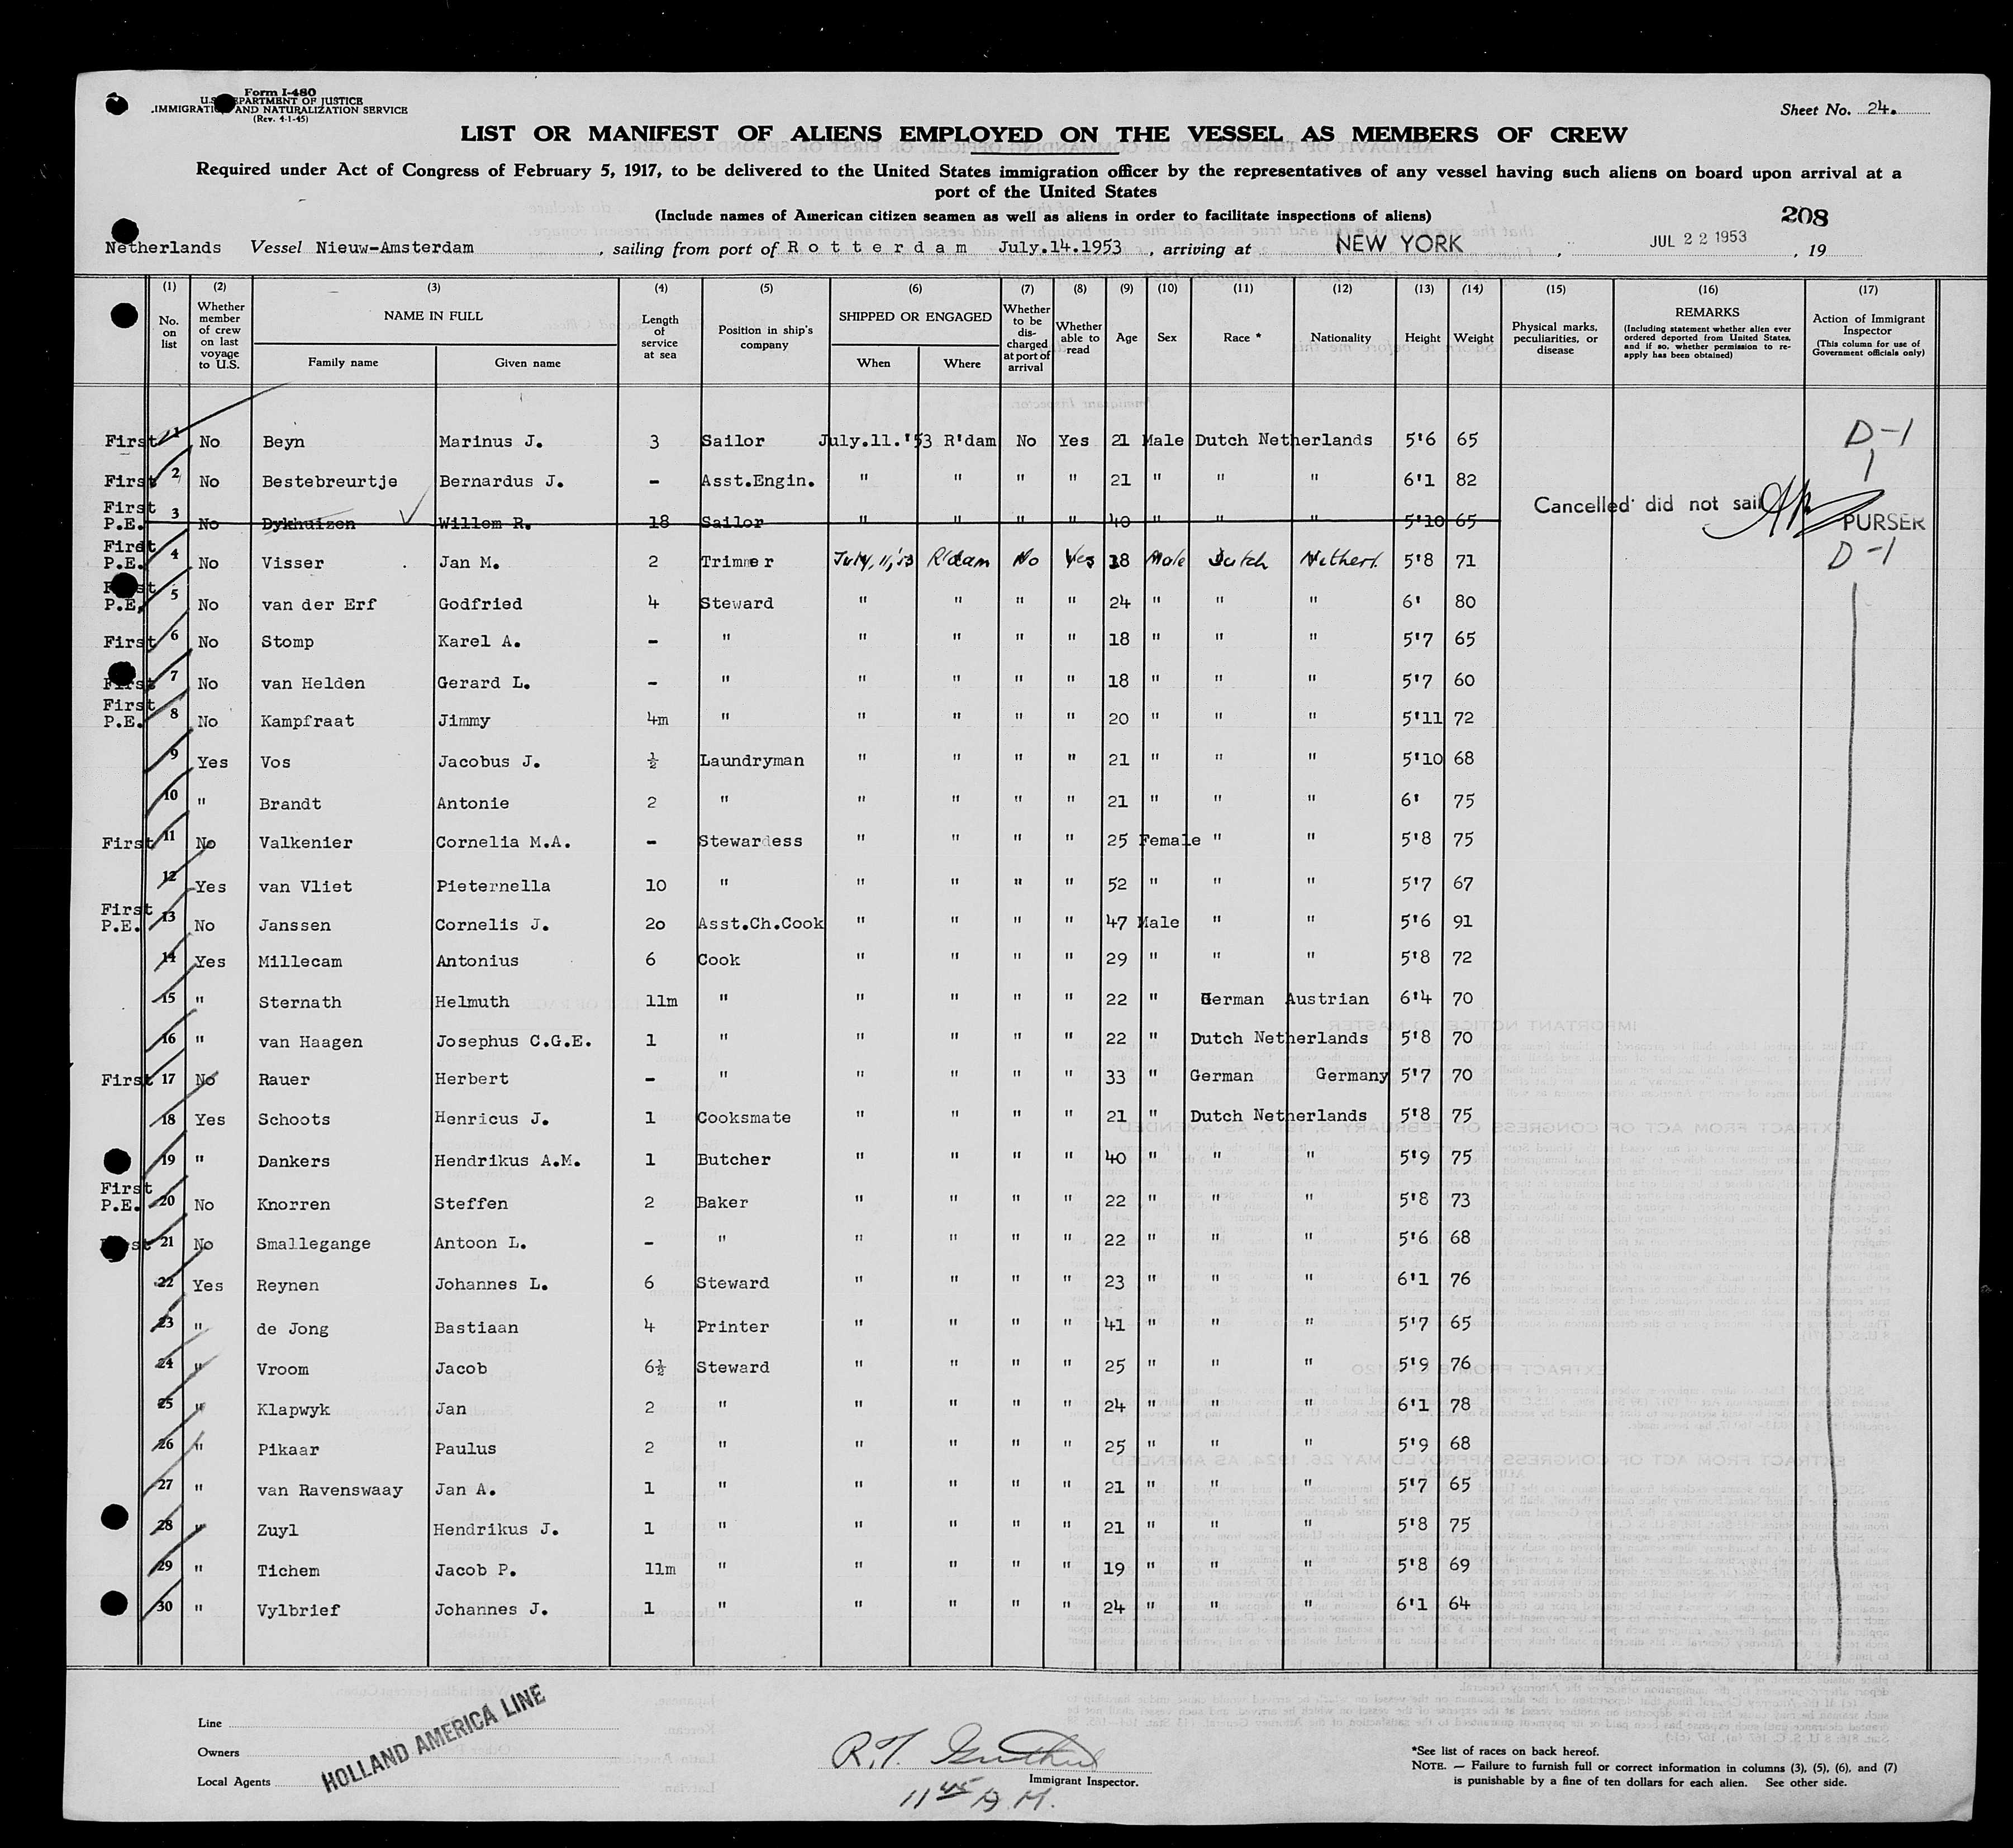 Form I-480
U.S. DEPARTMENT OF JUSTICE
IMMIGRATION AND NATURALIZATION SERVICE
(Rev. 4-1-45)
Sheet No. 24.
LIST OR MANIFEST OF ALIENS EMPLOYED ON THE VESSEL AS MEMBERS OF CREW
Required under Act of Congress of February 5, 1917, to be delivered to the United States immigration officer by the representatives of any vessel having such aliens on board upon arrival at a
port of the United States
(Include names of American citizen seamen as well as aliens in order to facilitate inspections of aliens)
208
Netherlands Vessel Nieuw-Amsterdam, sailing from port of Rotterdam July.14.1953, arriving at NEW YORK, JUL 22 1953, 19
(1) No. on list
(2) Whether member of crew on last voyage to U.S.
(3) NAME IN FULL Family name Given name
(4) Length of service at sea
(5) Position in ship's company
(6) SHIPPED OR ENGAGED When Where
(7) Whether to be discharged at port of arrival
(8) Whether able to read
(9) Age
(10) Sex
(11) Race *
(12) Nationality
(13) Height
(14) Weight
(15) Physical marks, peculiarities, or disease
(16) REMARKS (Including statement whether alien ever ordered deported from United States, and if so, whether permission to re-apply has been obtained)
(17) Action of Immigrant Inspector (This column for use of Government officials only)
First 1 No Beyn Marinus J. 3 Sailor July.11.'53 R'dam No Yes 21 Male Dutch Netherlands 5'6 65 D-1
First 2 No Bestebreurtje Bernardus J. - Asst.Engin. " " " " 21 " " " 6'1 82
First P.E. 3 No Dykhuizen Willem R. 18 Sailor " " " " 40 " " " 5'10 65 Cancelled did not sail PURSER
First P.E. 4 No Visser Jan M. 2 Trimmer July, 11,'53 R'dam No Yes 18 Male Dutch Netherl. 5'8 71 D-1
First P.E. 5 No van der Erf Godfried 4 Steward " " " " 24 " " " 6' 80
First 6 No Stomp Karel A. - " " " " " 18 " " " 5'7 65
First 7 No van Helden Gerard L. - " " " " " 18 " " " 5'7 60
First P.E. 8 No Kampfraat Jimmy 4m " " " " " 20 " " " 5'11 72
9 Yes Vos Jacobus J. ½ Laundryman " " " " 21 " " " 5'10 68
10 " Brandt Antonie 2 " " " " " 21 " " " 6' 75
First 11 No Valkenier Cornelia M.A. - Stewardess " " " " 25 Female " " 5'8 75
12 Yes van Vliet Pieternella 10 " " " " " 52 " " " 5'7 67
First P.E. 13 No Janssen Cornelis J. 20 Asst.Ch.Cook " " " " 47 Male " " 5'6 91
14 Yes Millecam Antonius 6 Cook " " " " 29 " " " 5'8 72
15 " Sternath Helmuth 11m " " " " " 22 " German Austrian 6'4 70
16 " van Haagen Josephus C.G.E. 1 " " " " " 22 " Dutch Netherlands 5'8 70
First 17 No Rauer Herbert - " " " " " 33 " German Germany 5'7 70
18 Yes Schoots Henricus J. 1 Cooksmate " " " " 21 " Dutch Netherlands 5'8 75
19 " Dankers Hendrikus A.M. 1 Butcher " " " " 40 " " " 5'9 75
First P.E. 20 No Knorren Steffen 2 Baker " " " " 22 " " " 5'8 73
First 21 No Smallegange Antoon L. - " " " " " 22 " " " 5'6 68
22 Yes Reynen Johannes L. 6 Steward " " " " 23 " " " 6'1 76
23 " de Jong Bastiaan 4 Printer " " " " 41 " " " 5'7 65
24 " Vroom Jacob 6½ Steward " " " " 25 " " " 5'9 76
25 " Klapwyk Jan 2 " " " " " 24 " " " 6'1 78
26 " Pikaar Paulus 2 " " " " " 25 " " " 5'9 68
27 " van Ravenswaay Jan A. 1 " " " " " 21 " " " 5'7 65
28 " Zuyl Hendrikus J. 1 " " " " " 21 " " " 5'8 75
29 " Tichem Jacob P. 11m " " " " " 19 " " " 5'8 69
30 " Vylbrief Johannes J. 1 " " " " " 24 " " " 6'1 64
Line
Owners
Local Agents
HOLLAND AMERICA LINE
R.T.
Immigrant Inspector.
11 45 A.M.
*See list of races on back hereof.
NOTE. — Failure to furnish full or correct information in columns (3), (5), (6), and (7)
is punishable by a fine of ten dollars for each alien. See other side.